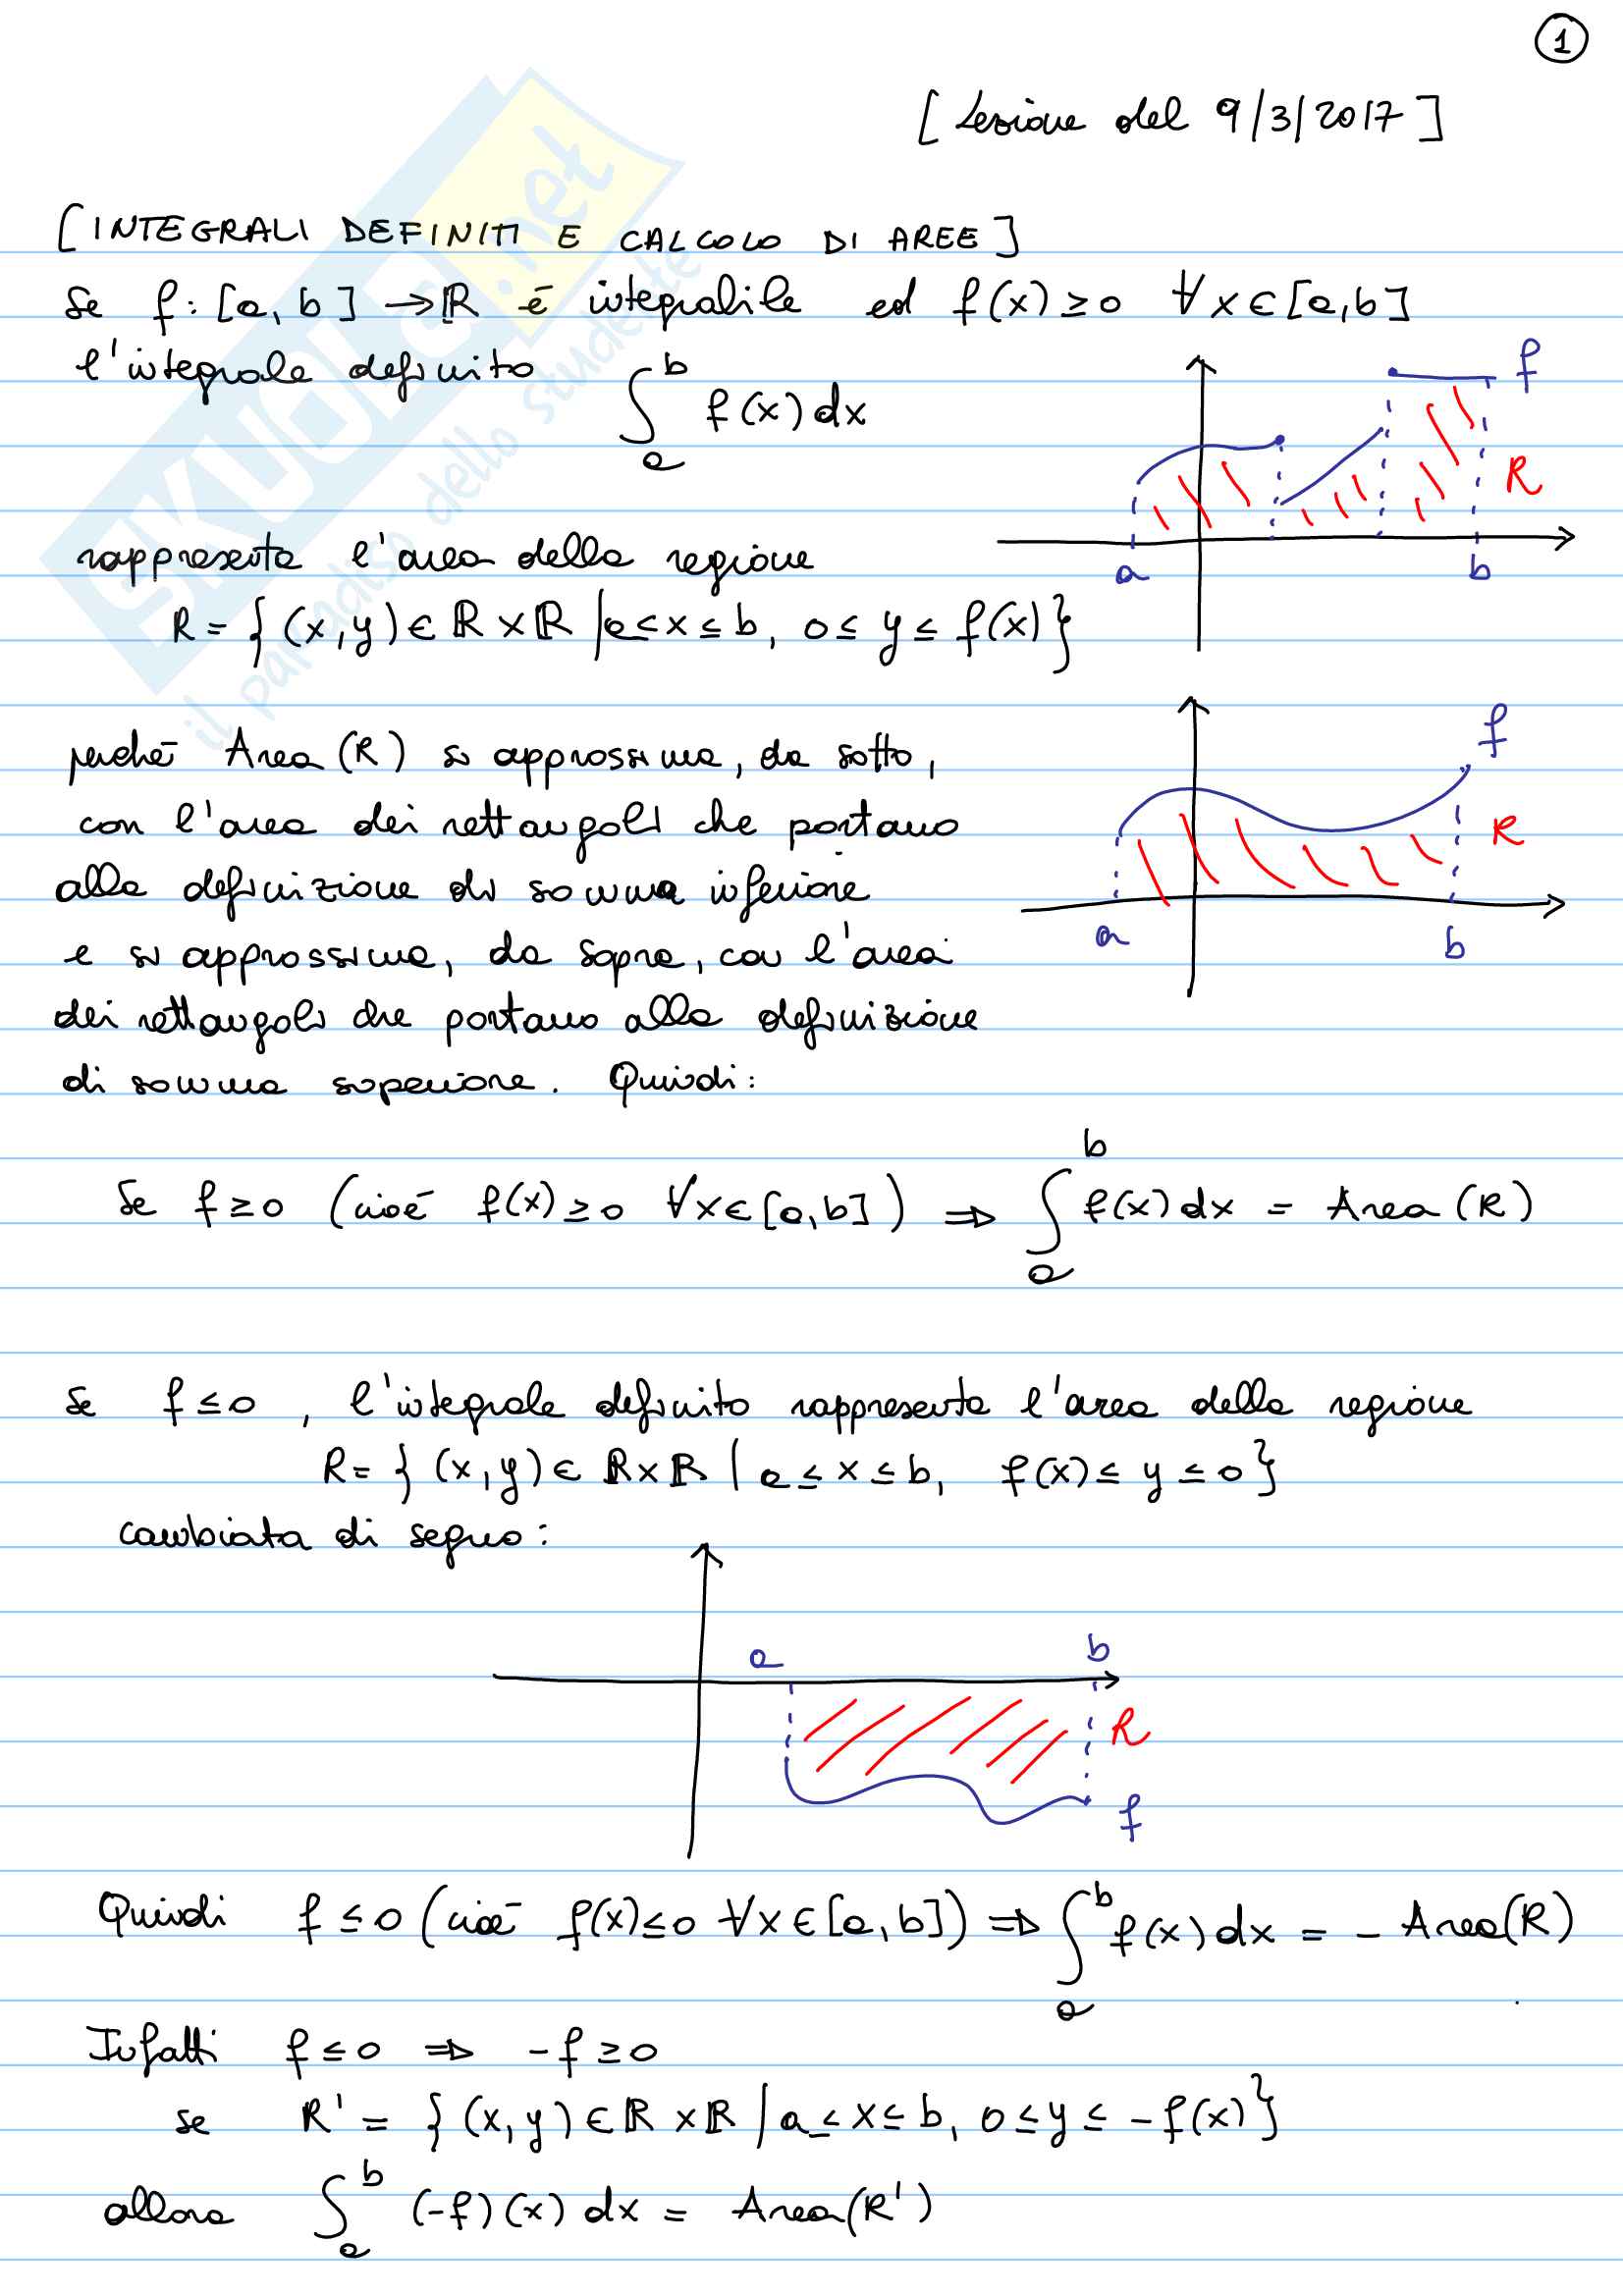 1
[Lezione del 9/3/2017]
[INTEGRALI DEFINITI E CALCOLO DI AREE]
Se f: [a, b] → ℝ è integrabile ed f(x) ≥ 0 ∀ x ∈ [a, b]
l'integrale definito ∫_a^b f(x) dx
f
R
a b
rappresenta l'area della regione
R = { (x, y) ∈ ℝ × ℝ | a ≤ x ≤ b, 0 ≤ y ≤ f(x) }
f
R
a b
perché Area (R) si approssima, da sotto,
con l'area dei rettangoli che portano
alla definizione di somma inferiore
e si approssima, da sopra, con l'area
dei rettangoli che portano alla definizione
di somma superiore. Quindi:
Se f ≥ 0 (cioè f(x) ≥ 0 ∀ x ∈ [a, b]) ⇒ ∫_a^b f(x) dx = Area (R)
Se f ≤ 0, l'integrale definito rappresenta l'area della regione
R = { (x, y) ∈ ℝ × ℝ | a ≤ x ≤ b, f(x) ≤ y ≤ 0 }
cambiata di segno:
a b
R
f
Quindi f ≤ 0 (cioè f(x) ≤ 0 ∀ x ∈ [a, b]) ⇒ ∫_a^b f(x) dx = - Area(R)
Infatti f ≤ 0 ⇒ -f ≥ 0
se R' = { (x, y) ∈ ℝ × ℝ | a ≤ x ≤ b, 0 ≤ y ≤ -f(x) }
allora ∫_a^b (-f)(x) dx = Area(R')
SKUOLA.net
il paradiso dello studente